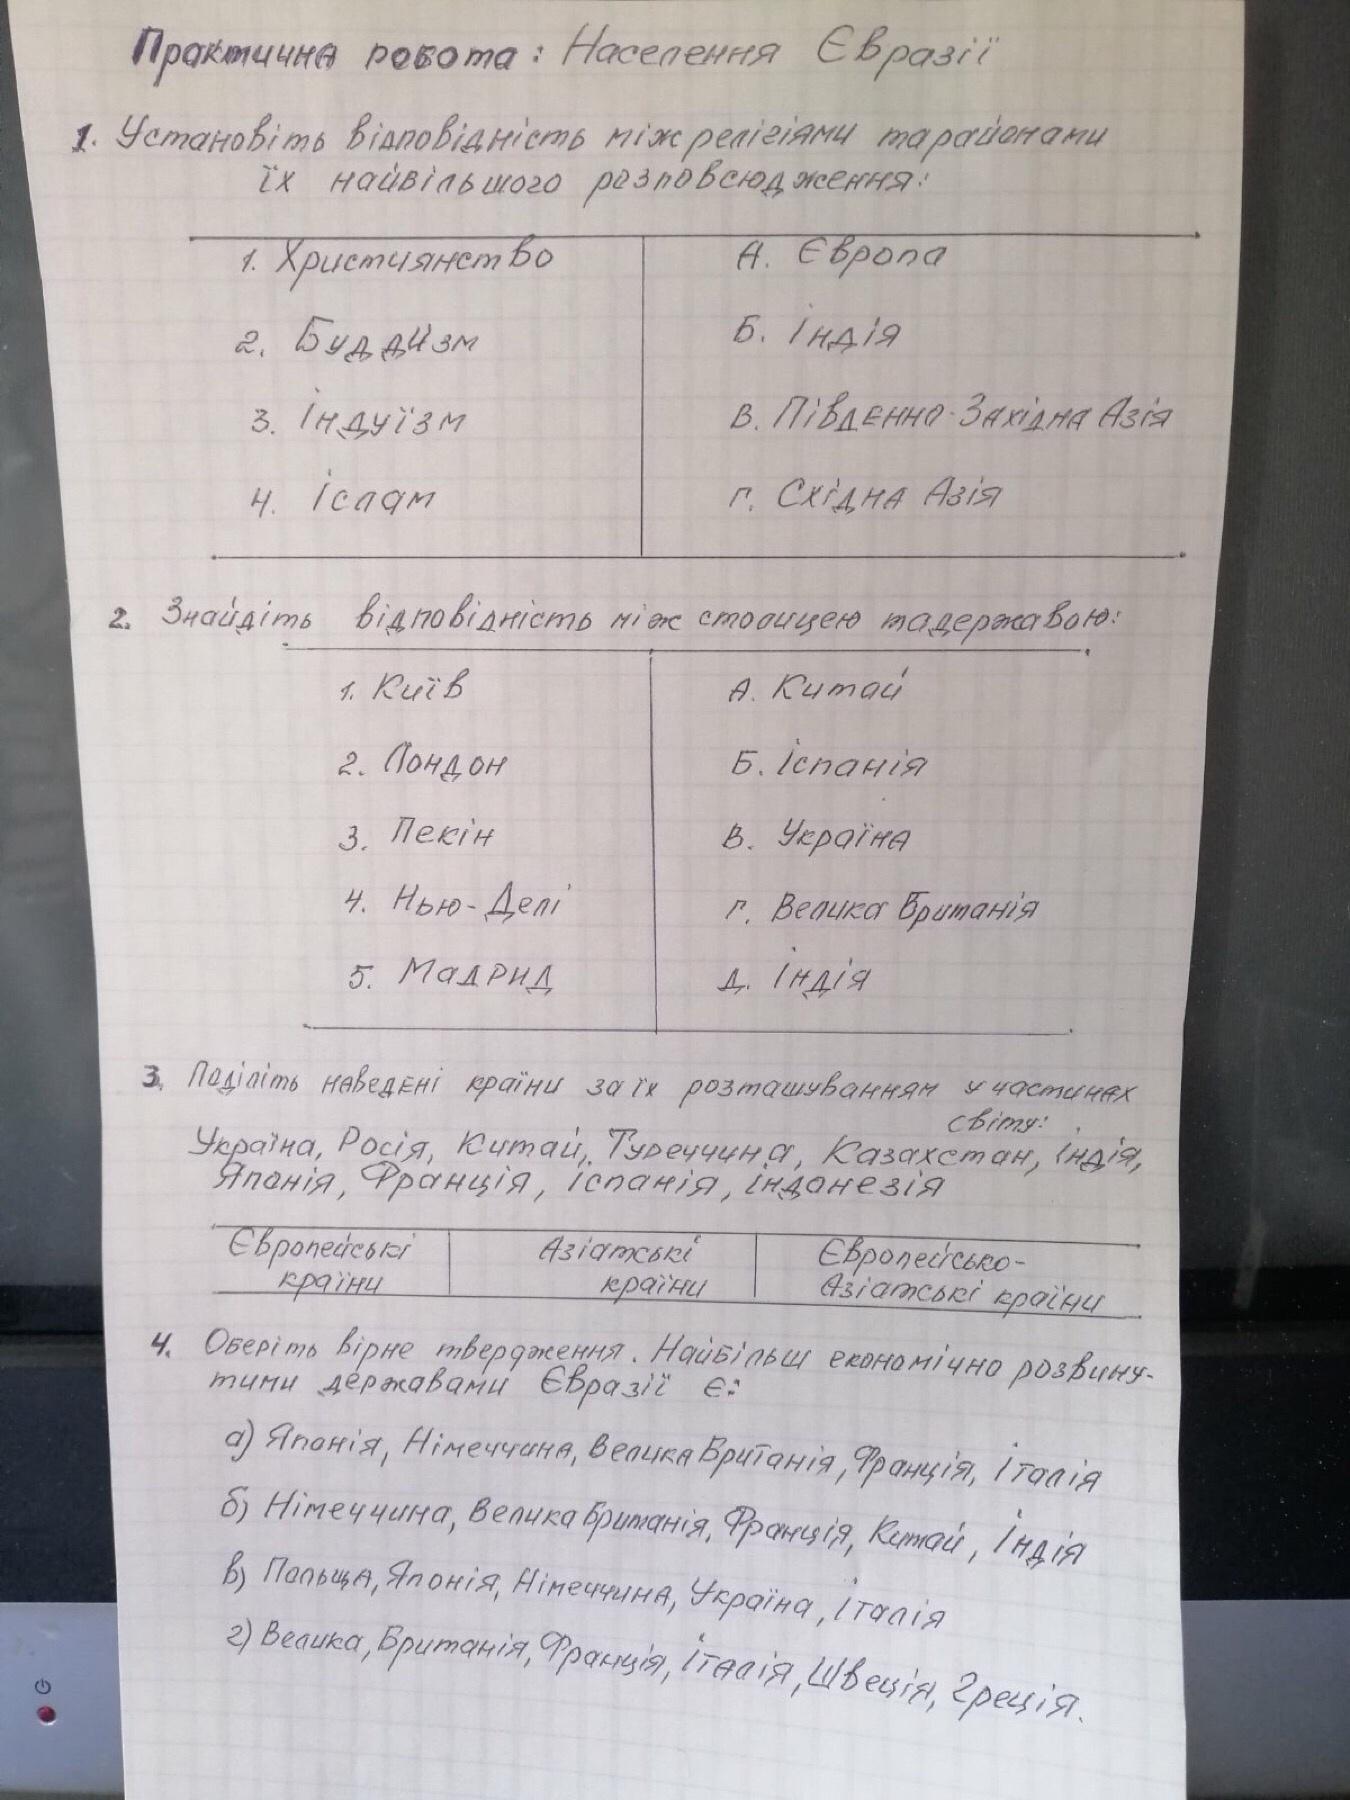 Практична робота: Населення Євразії
1. Установіть відповідність між релігіями та районами
їх найвільшого розповсюдження:
1. Християнство
А. Європа
2. Буддизм
Б. Індія
3. Індуїзм
В. Південно-Західна Азія
4. Іслам
Г. Східна Азія
2. Знайдіть відповідність між столицею та державою:
1. Київ
А. Китай
2. Лондон
Б. Іспанія
3. Пекін
В. Україна
4. Нью-Делі
Г. Велика Британія
5. Мадрид
Д. Індія
3. Поділіть наведені країни за їх розташуванням у частинах
світу:
Україна, Росія, Китай, Туреччина, Казахстан, Індія,
Японія, Франція, Іспанія, Індонезія
Європейські країни
Азіатські країни
Європейсько-Азіатські країни
4. Оберіть вірне твердження. Найбільш економічно розвину-
тими державами Євразії є:
а) Японія, Німеччина, Велика Британія, Франція, Італія
б) Німеччина, Велика Британія, Франція, Китай, Індія
в) Польща, Японія, Німеччина, Україна, Італія
г) Велика, Британія, Франція, Італія, Швеція, Греція.